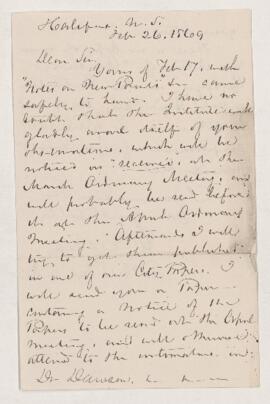 Halifax, N. S.
Feb 26, 1869
Dear Sir,
Yours of Feb 17, with
"Notes on New Plants" &c came
safely to hand. I have no
doubt that the Institute will
gladly avail itself of your
observations, which will be
noticed as "received" at the
March Ordinary Meeting, and
will probably be read before
it at the April Ordinary
Meeting. Afterwards I will
try to get them published
in one of our City Papers. I
will send you a Paper
containing a notice of the
Papers to be read at the April
meeting, and will otherwise
attend to the intimations in
Dr Dawson,